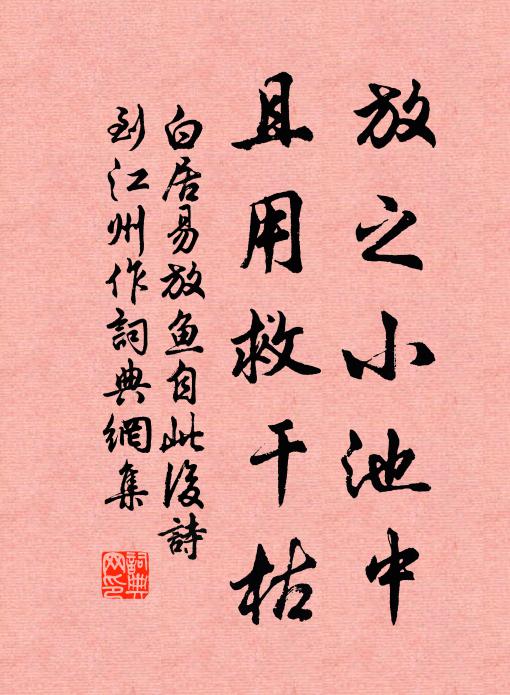 放之小池中
且用救干枯
白居易放鱼自此後詩
到江州作詞典網集
詞典网印